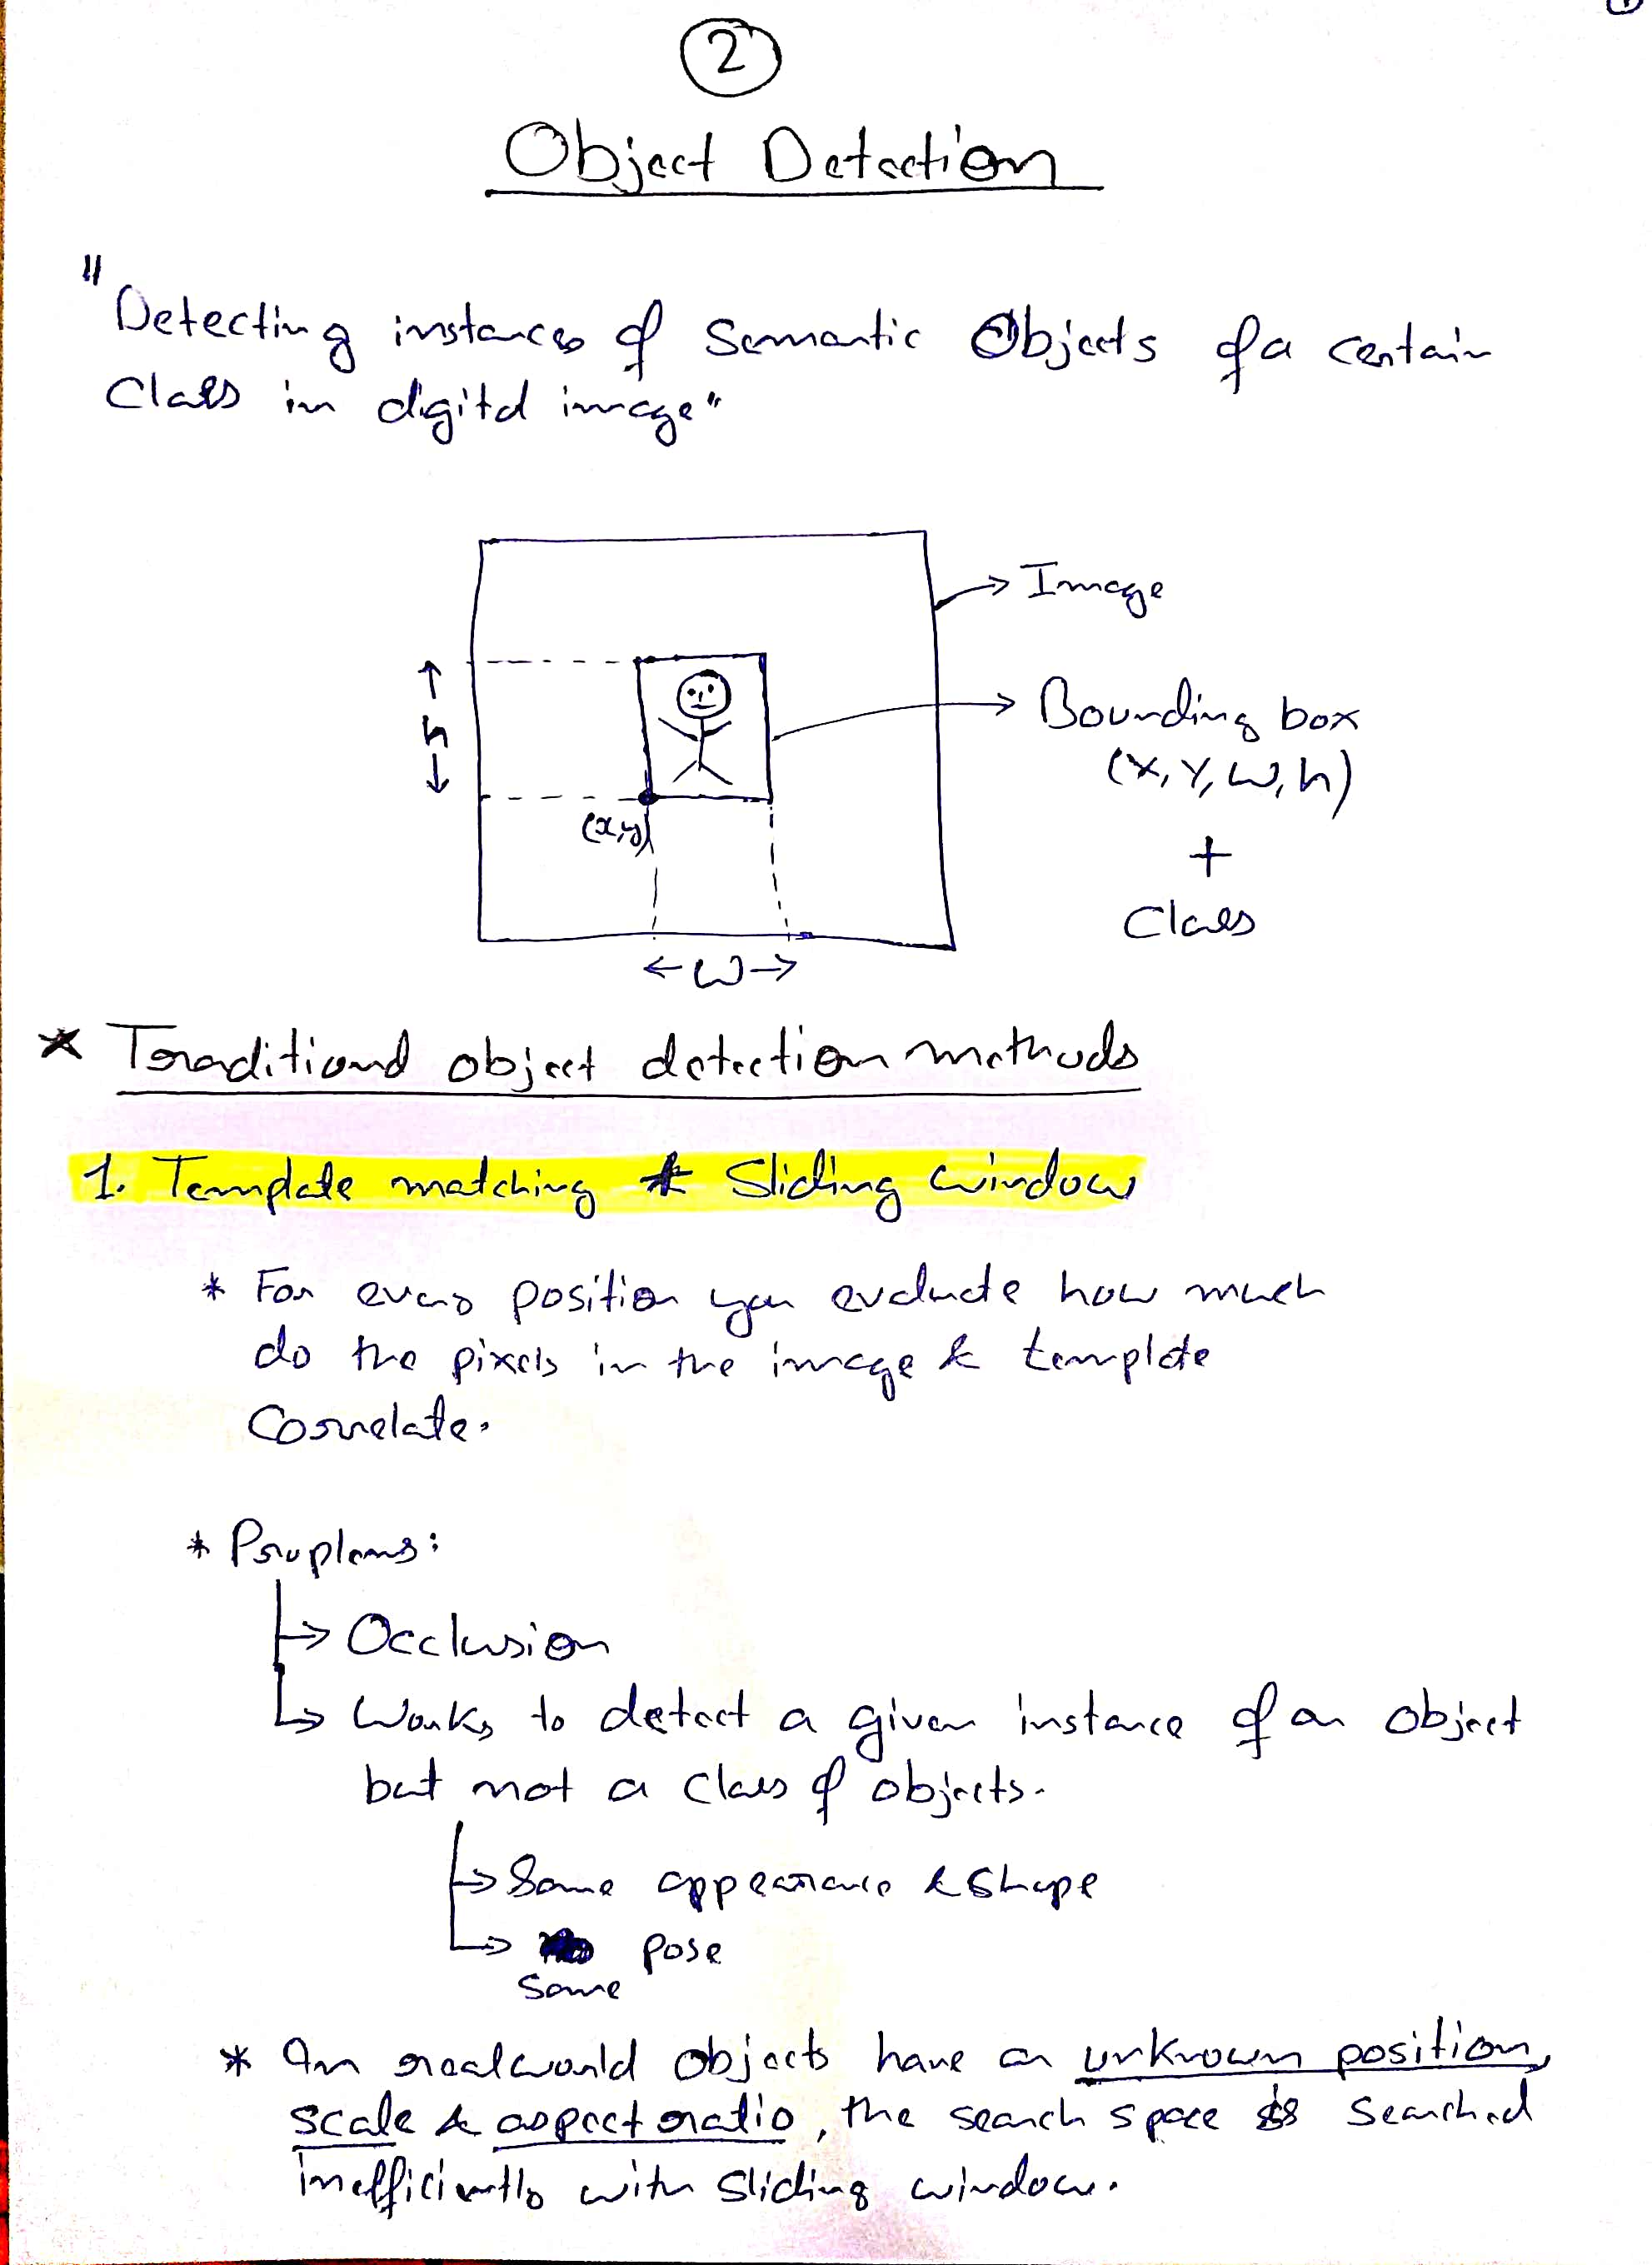 2
Object Detection
"Detecting instances of Semantic Objects of a certain
Class in digital image"
Image
h
Bounding box
(x, y, w, h)
(x,y)
+
Class
← w →
* Traditional object detection methods
1. Template matching & Sliding window
* For every position you evaluate how much
do the pixels in the image & template
Correlate.
* Prouplems:
→ Occlusion
↳ Works to detect a given instance of an object
but not a class of objects.
→ Same appearance & shape
→ pose
Same
* In real world objects have an unknown position,
scale & aspect ratio, the search space is searched
inefficiently with sliding window.